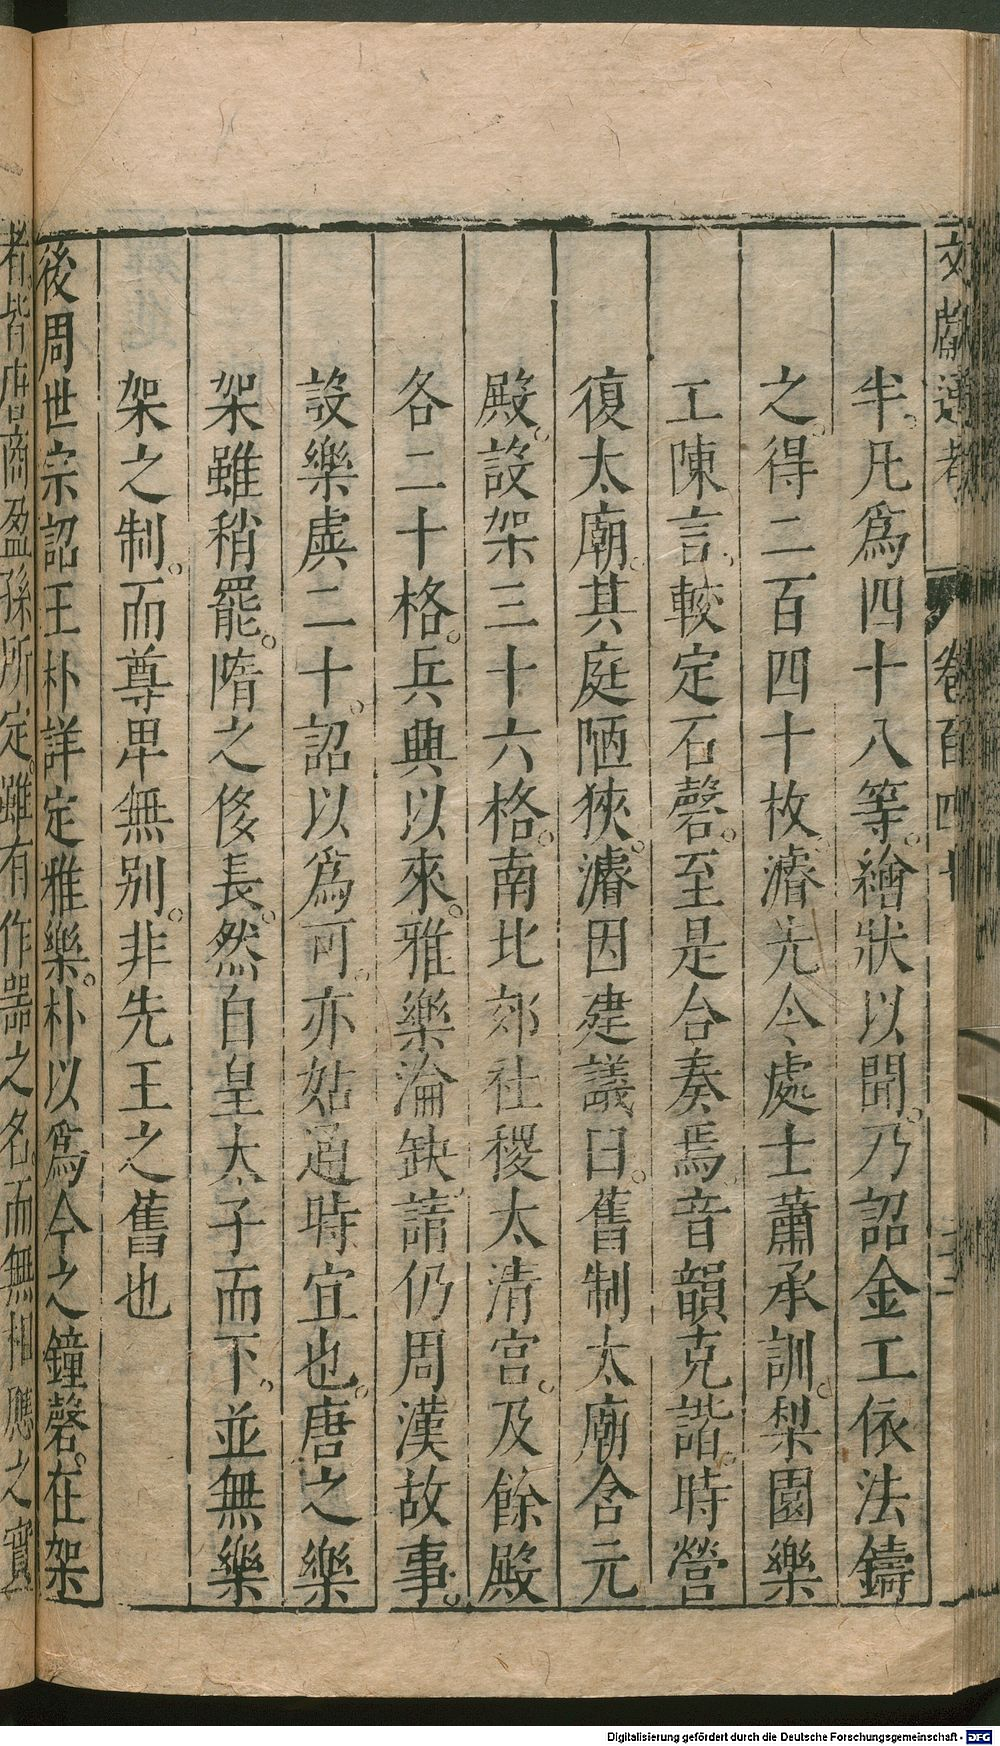 文獻通考 卷百四十
半。凡爲四十八等。繪狀以聞。乃詔金工依法鑄
之。得二百四十枚。濬先令處士蕭承訓。梨園樂
工陳言。較定石磬。至是合奏焉。音韻克諧。時營
復太廟。其庭陋狹。濬因建議曰。舊制太廟含元
殿。設架三十六格。南北郊社稷太清宮。及餘殿
各二十格。兵興以來。雅樂淪缺。請仍周漢故事。
設樂虡二十。詔以爲可。亦姑通時宜也。唐之樂
架雖稍罷。隋之侈長。然自皇太子而下。並無樂
架之制。而尊卑無别。非先王之舊也
後周世宗詔王朴詳定雅樂。朴以爲今之鐘磬。在架
者。皆唐商盈孫所定。雖有作器之名。而無相應之實
Digitalisierung gefördert durch die Deutsche Forschungsgemeinschaft - DFG